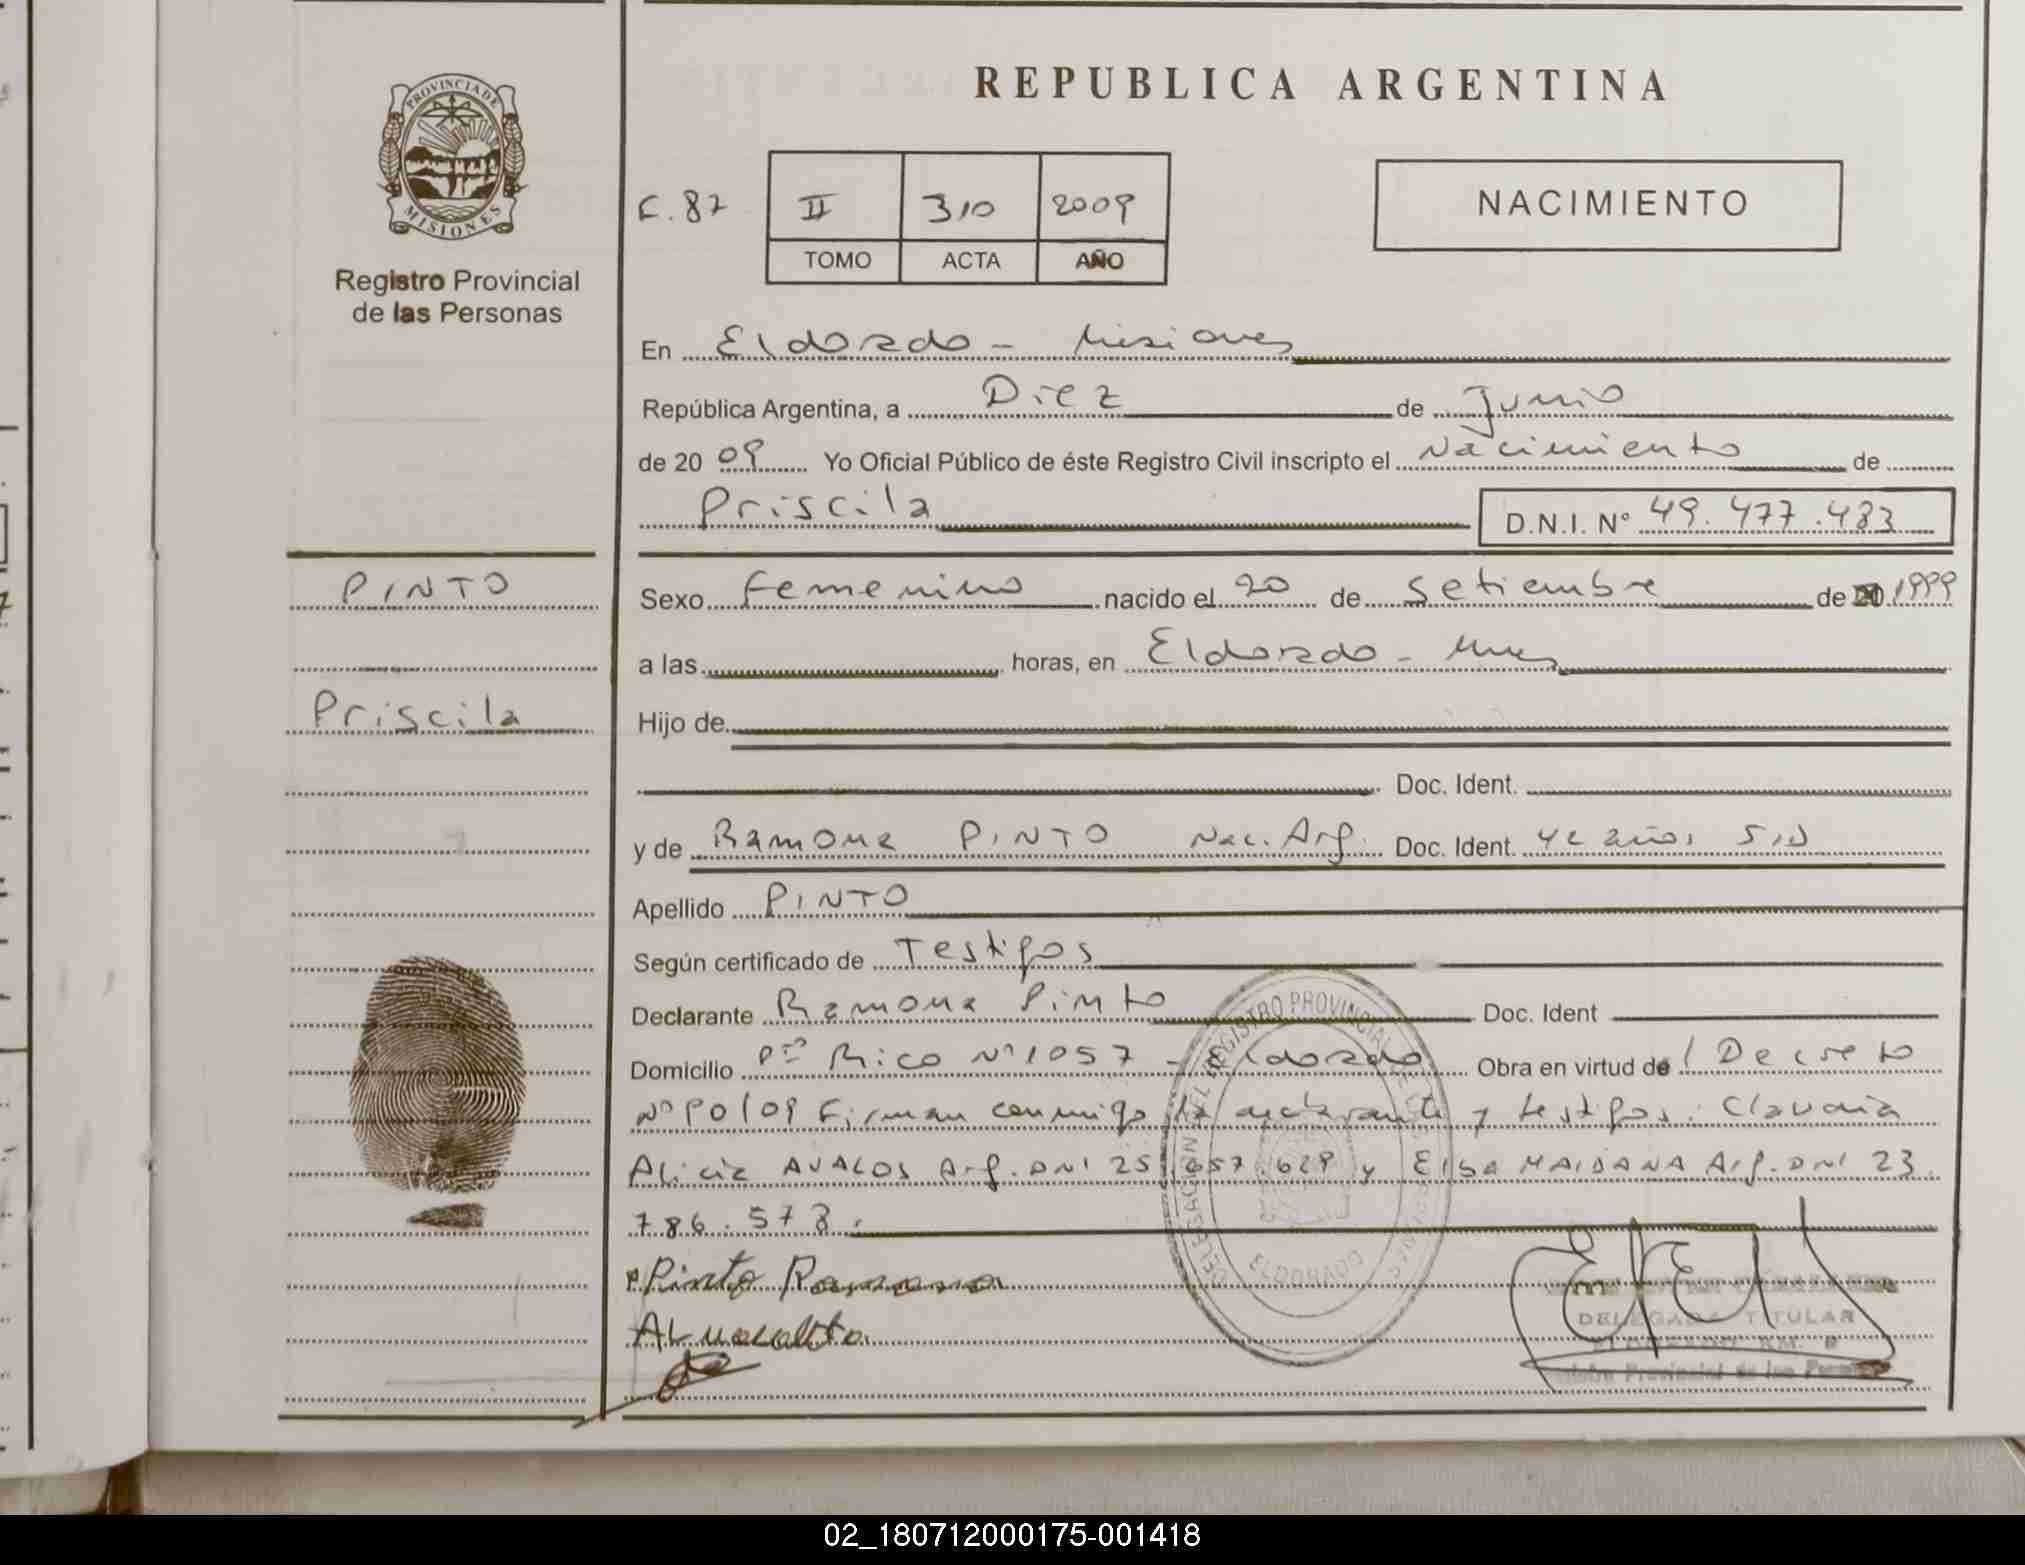 PROVINCIA DE
MISIONES
Registro Provincial
de las Personas
REPUBLICA ARGENTINA
F. 87
II 310 2009
TOMO ACTA AÑO
NACIMIENTO
En Eldorado - Misiones
República Argentina, a Diez de Junio
de 20 09 Yo Oficial Público de éste Registro Civil inscripto el Nacimiento de
Priscila D.N.I. Nº 49.477.483
PINTO
Priscila
Sexo Femenino nacido el 20 de Setiembre de 20 1999
a las horas, en Eldorado - Mnes
Hijo de
Doc. Ident.
y de Ramona PINTO Nac. Arg. Doc. Ident. 42 años S/D
Apellido PINTO
Según certificado de Testigos
Declarante Ramona Pinto Doc. Ident
Domicilio Pto Rico Nº 1057 - Eldorado Obra en virtud del Decreto
Nº 90/09 Firman conmigo la declarante y testigos: Claudia
Alicia AVALOS Arg. DNI 25.657.629 y Elsa MAIDANA Arg. DNI 23.
786.573.
Pinto Ramona
DELEGACION DEL REGISTRO PROVINCIAL DE LAS PERSONAS
ELDORADO
DELEGADA TITULAR
ELDORADO KM. 9
Provincial de las Personas
02_180712000175-001418